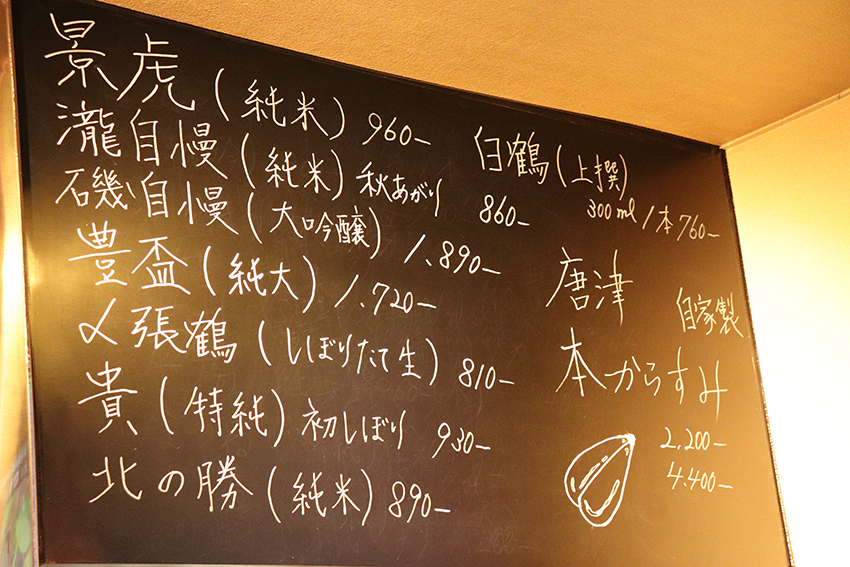 景虎(純米) 960-
瀧自慢(純米)秋あがり 860-
磯自慢(大吟醸) 1,890-
豊盃(純大) 1,720-
〆張鶴(しぼりたて生) 810-
貴(特純)初しぼり 930-
北の勝(純米) 890-
白鶴(上撰)
300ml 1本760-
唐津
自家製
本からすみ
2,200-
4,400-